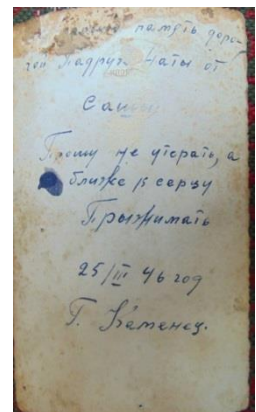 память доро-
гой Падруги Наты от
Саши
Прошу не утерать, а
ближе к серцу
Прыжимать
25/III 46 год
Г. Каменец.